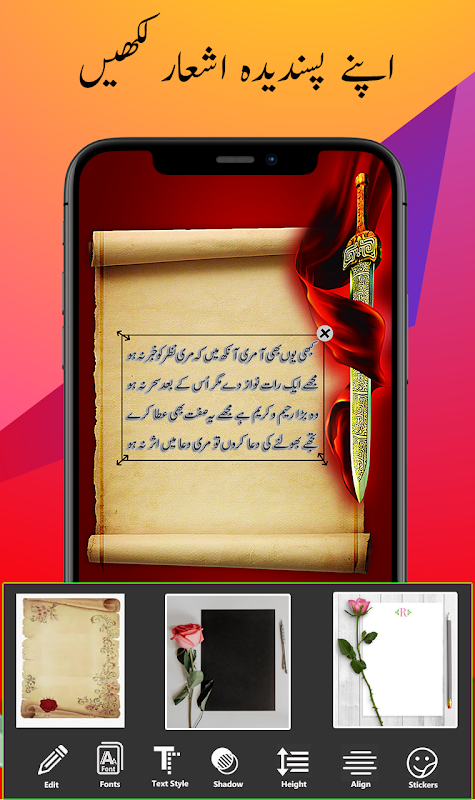 اپنے پسندیدہ اشعار لکھیں
کبھی یوں بھی آ مری آنکھ میں کہ مری نظر کو خبر نہ ہو
مجھے ایک رات نواز دے مگر اُس کے بعد سحر نہ ہو
وہ بڑا رحیم و کریم ہے مجھے یہ صفت بھی عطا کرے
تجھے بھولنے کی دعا کروں تو مری دعا میں اثر نہ ہو
R
Edit
Font
Fonts
Text Style
Shadow
Height
Align
Stickers